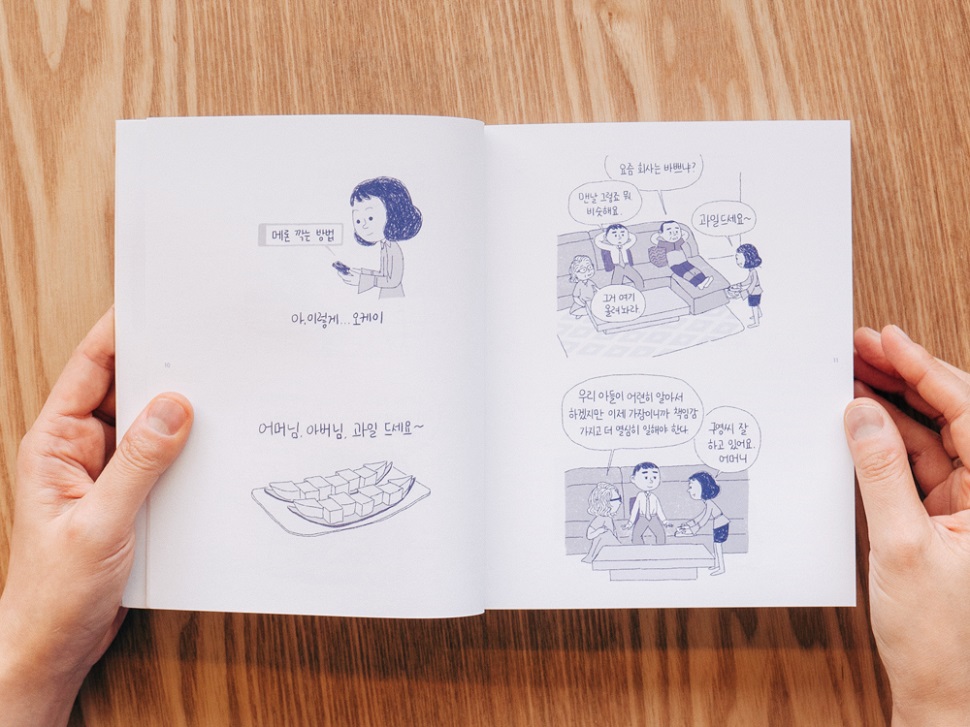 메론 깎는 방법
아, 이렇게... 오케이
어머님, 아버님, 과일 드세요~
요즘 회사는 바쁘냐?
맨날 그렇죠 뭐
비슷해요.
과일드세요~
그거 여기
올려놔라.
우리 아들이 어련히 알아서
하겠지만 이제 가장이니까 책임감
가지고 더 열심히 일해야 한다
구영씨 잘
하고 있어요.
어머니